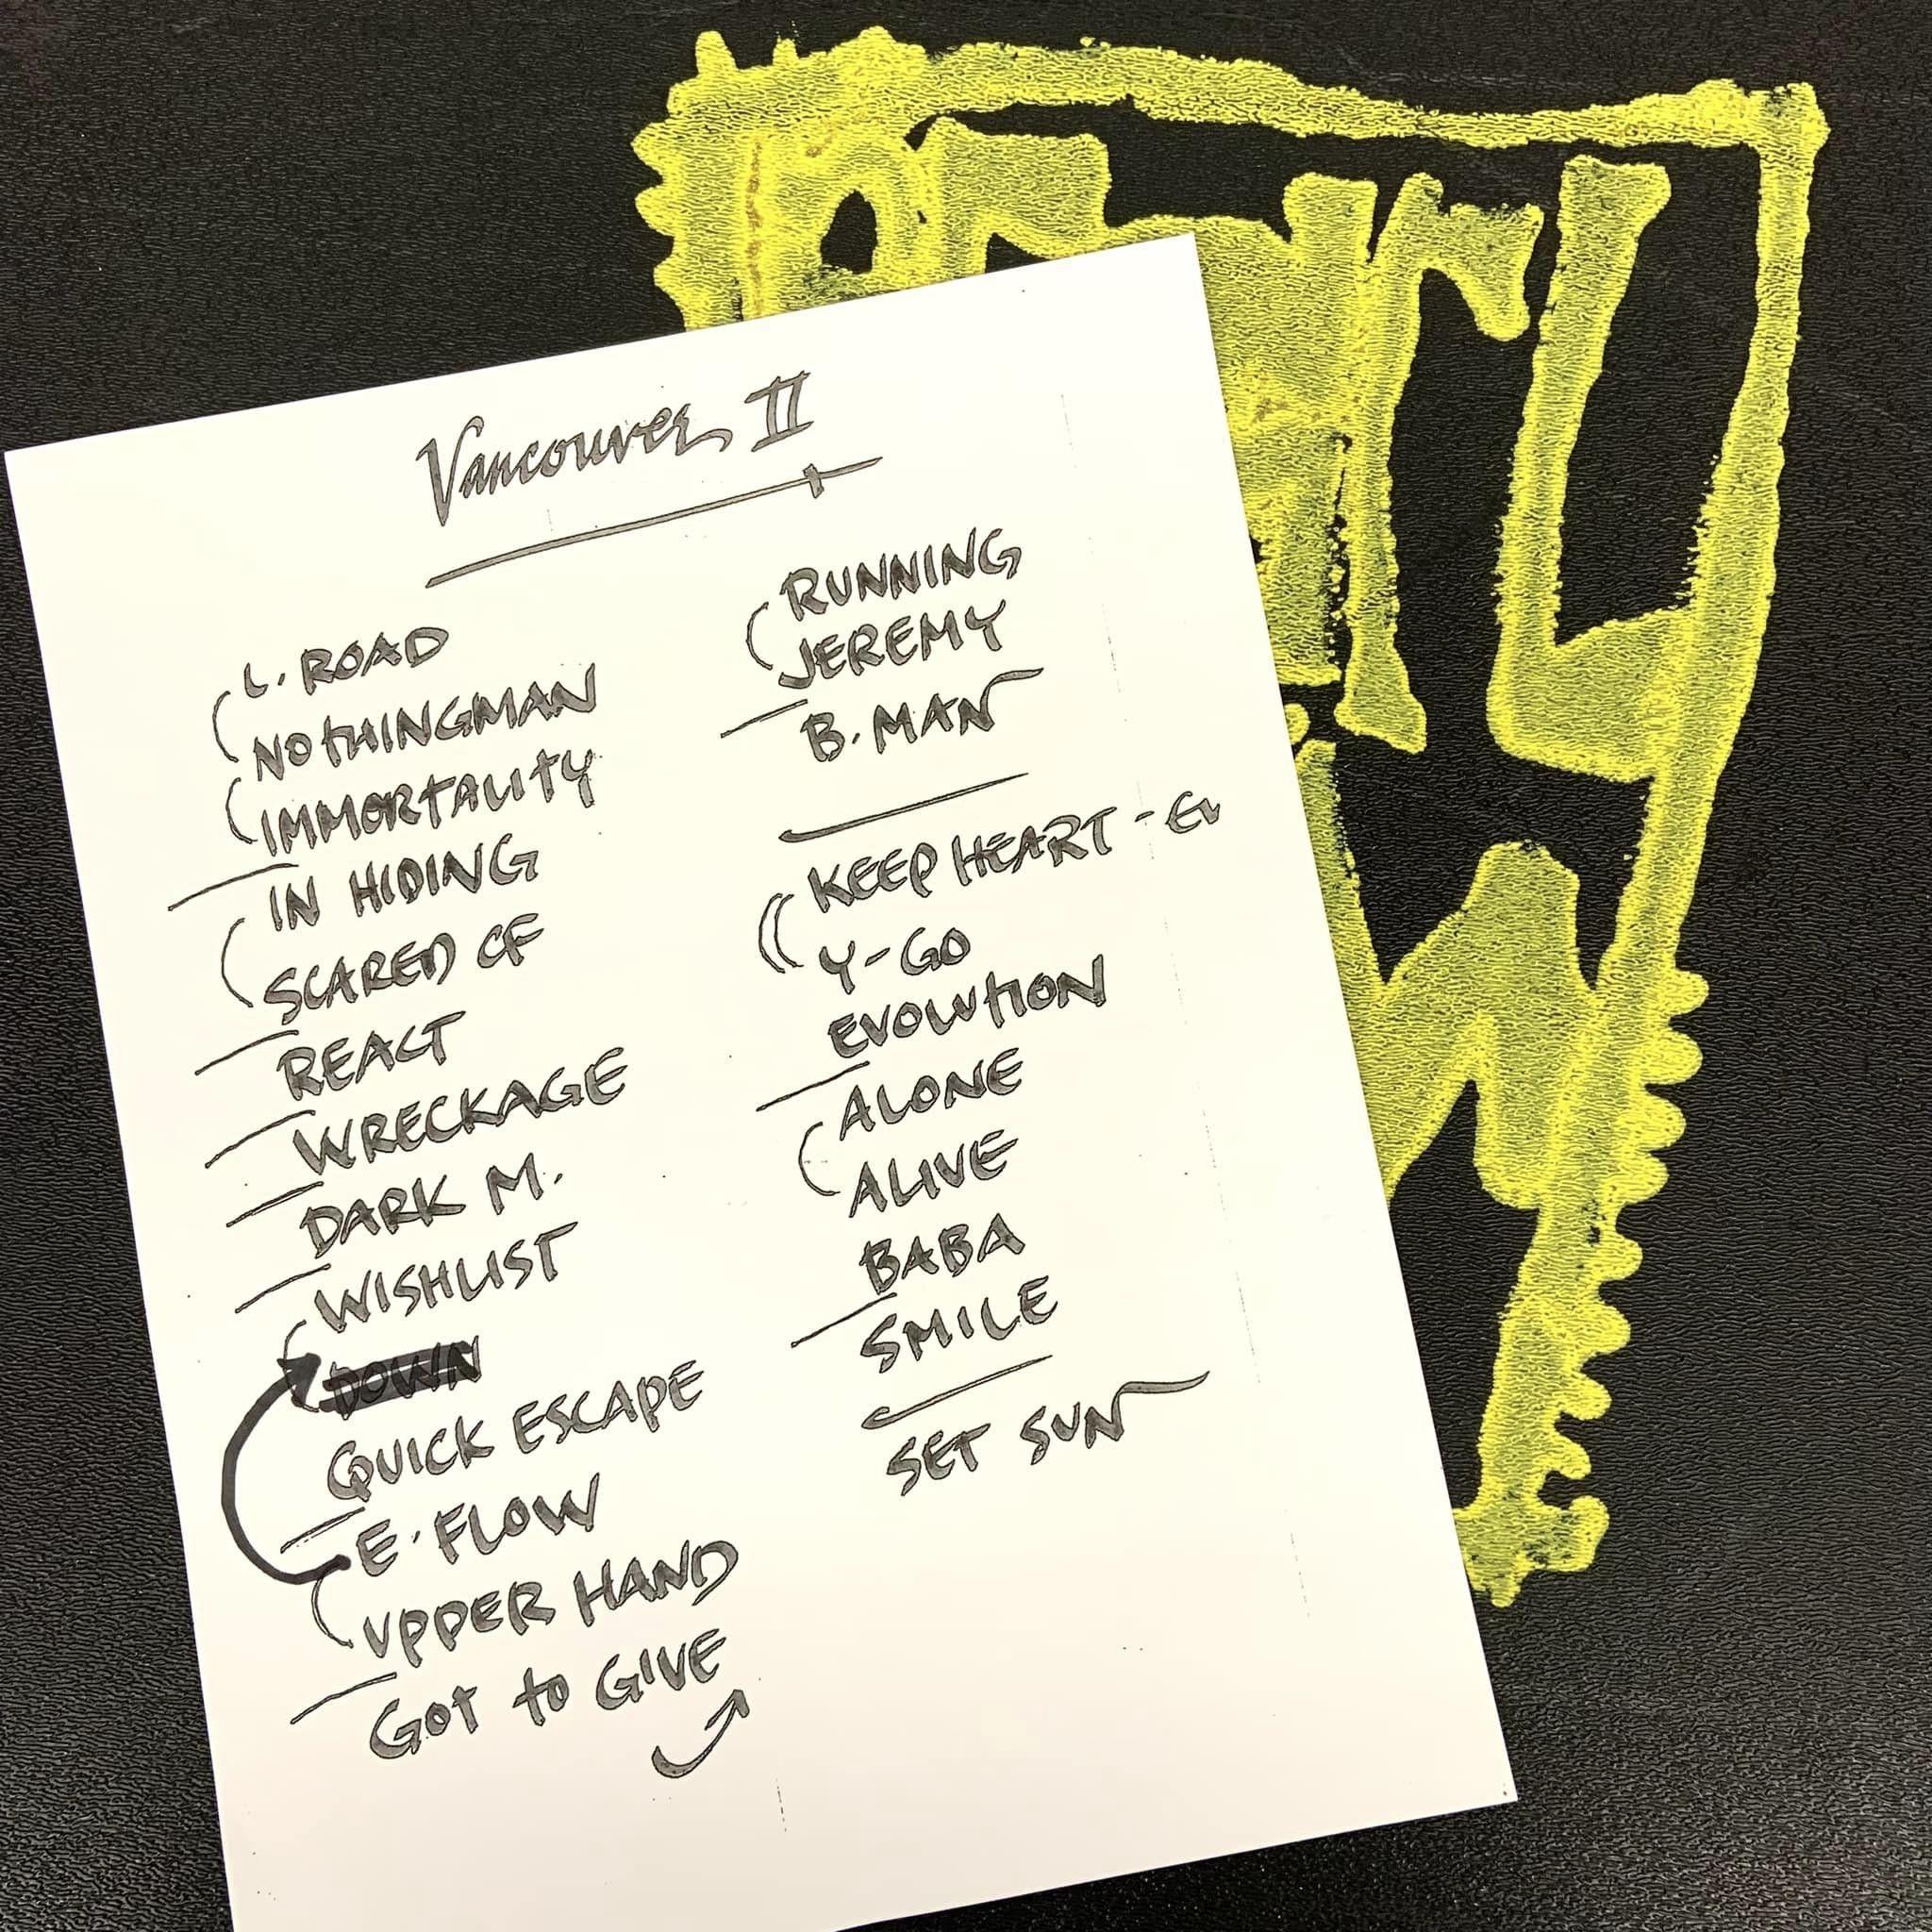 Pearl
Vancouver II
L. ROAD
NOTHINGMAN
IMMORTALITY
IN HIDING
SCARED OF
REACT
WRECKAGE
DARK M.
WISHLIST
DOWN
QUICK ESCAPE
E. FLOW
UPPER HAND
GOT TO GIVE
RUNNING
JEREMY
B. MAN
KEEP HEART - EV
Y-GO
EVOLUTION
ALONE
ALIVE
BABA
SMILE
SET SUN